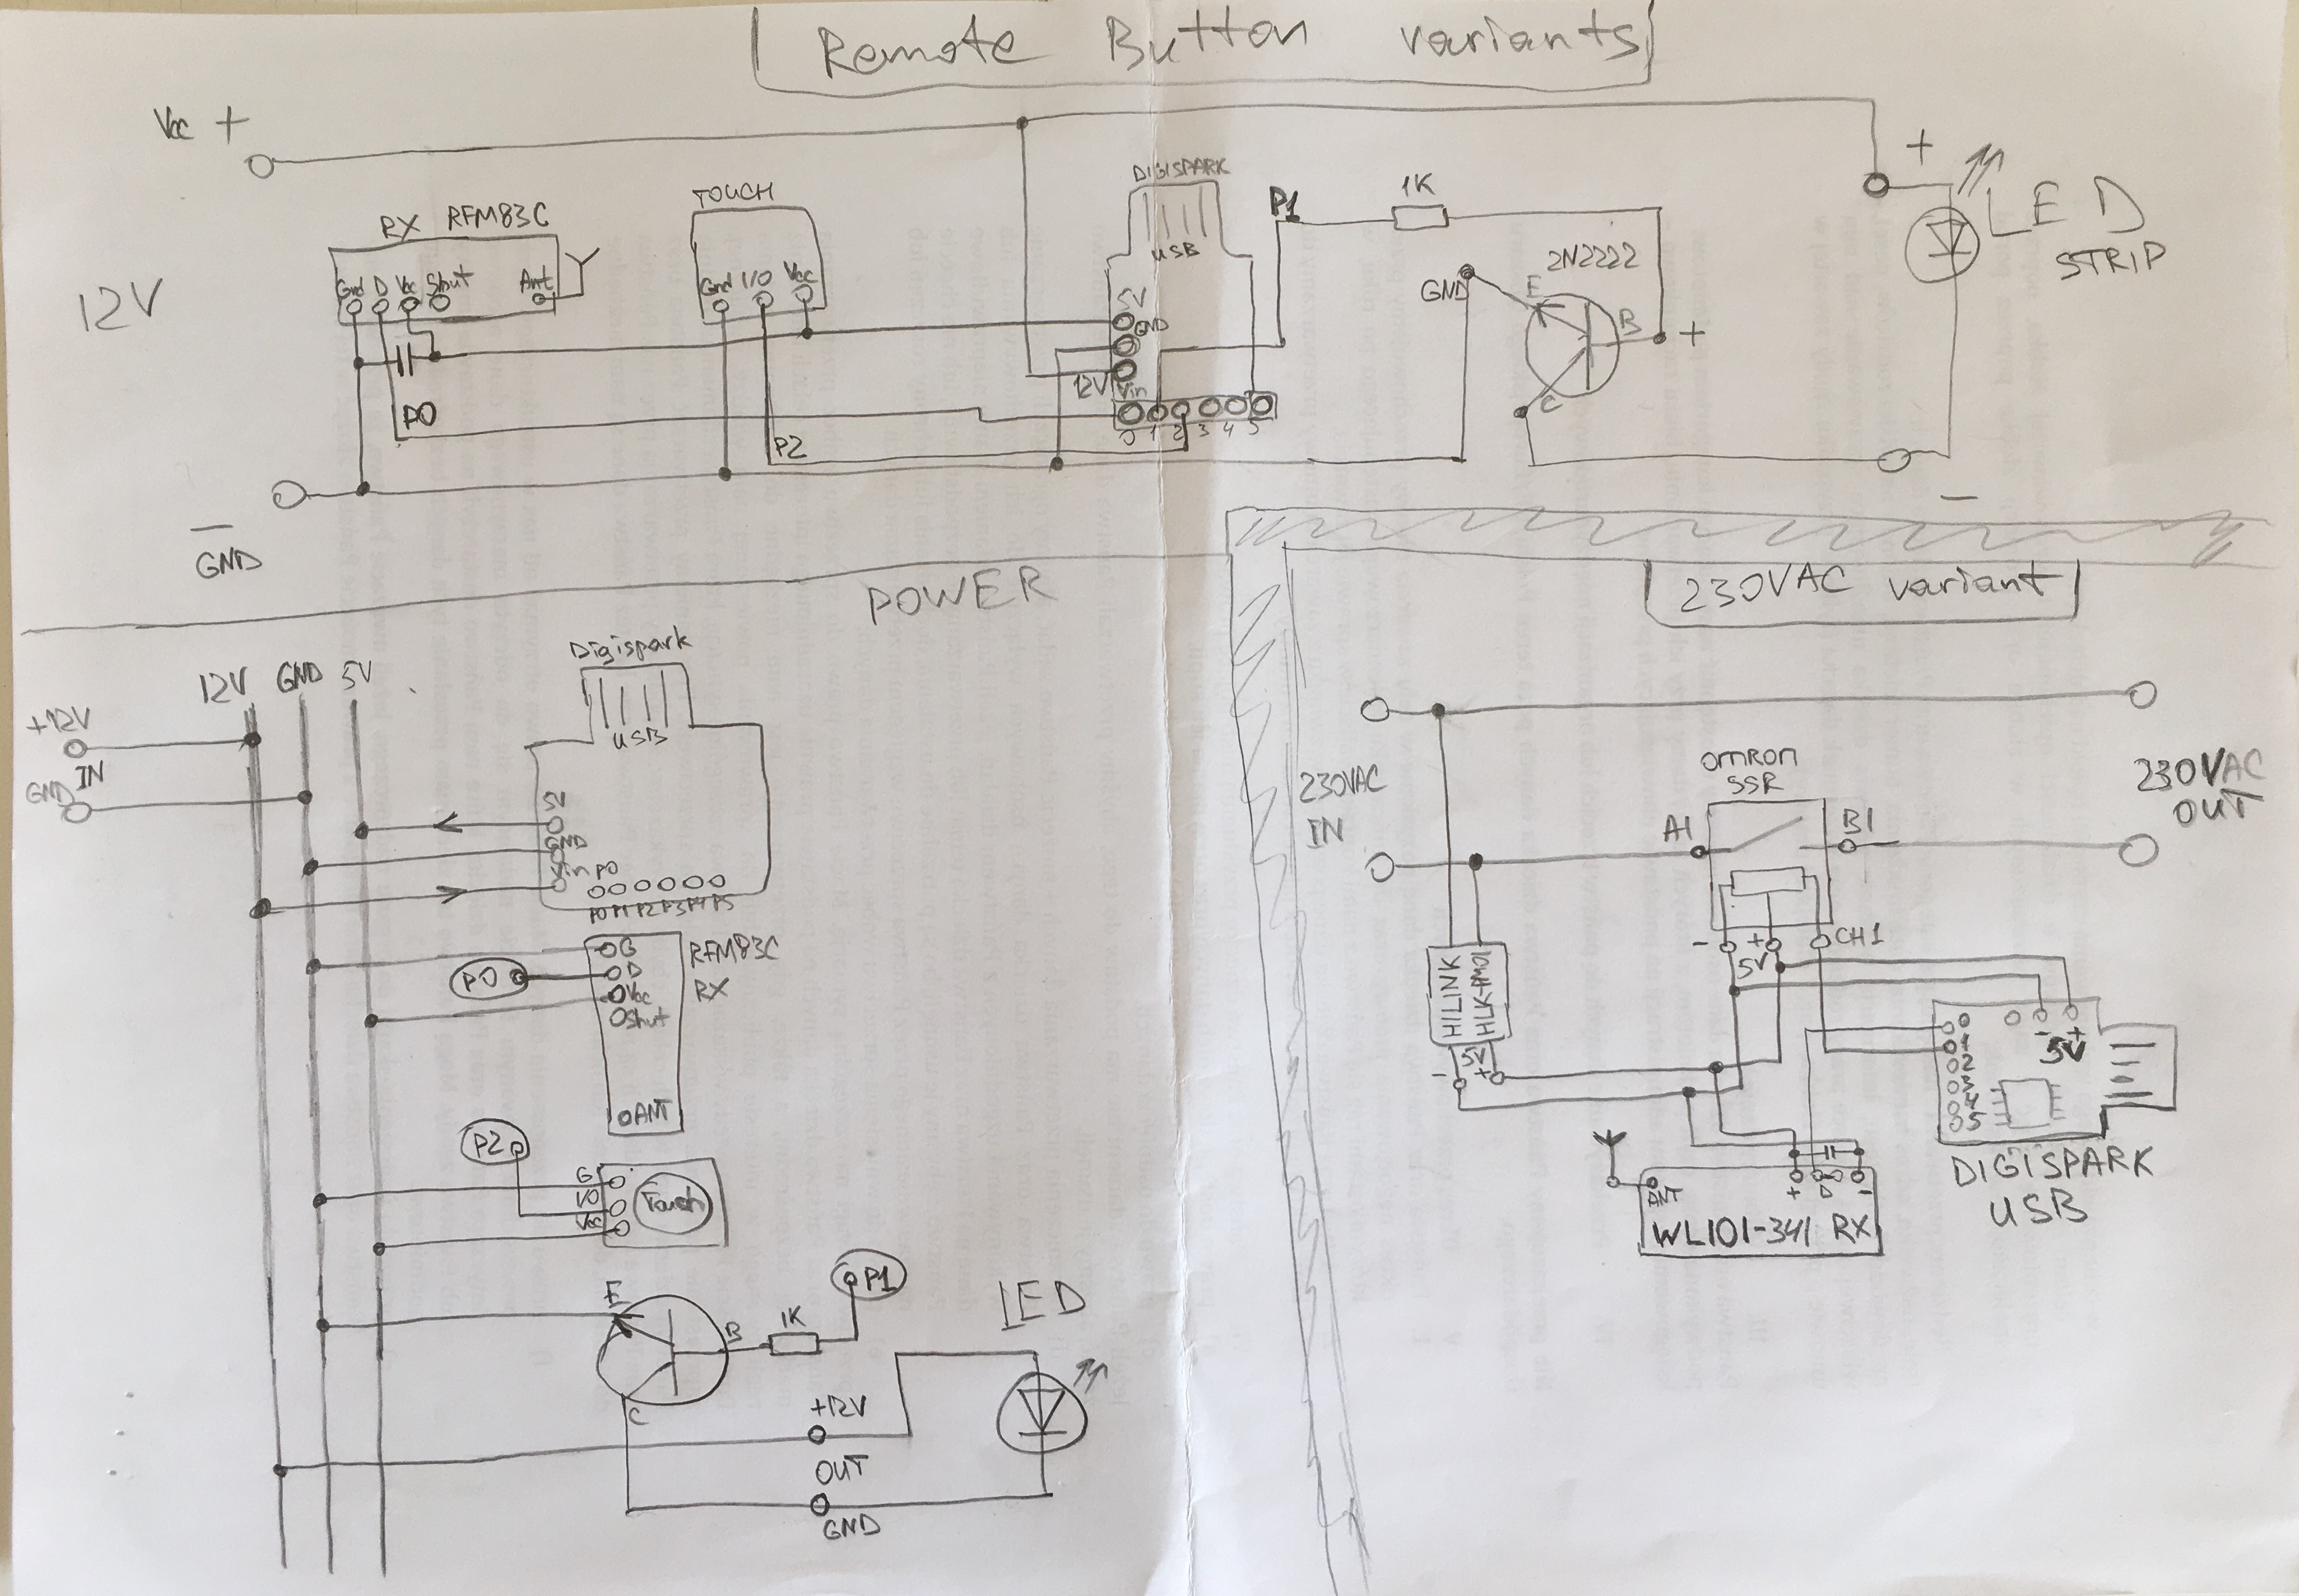 Remote Button variants
Vcc +
12V
RX RFM83C
Gnd D Vcc Shut Ant
TOUCH
Gnd I/O Vcc
DIGISPARK
USB
5V
GND
12V Vin
0 1 2 3 4 5
P0
P2
P1
1K
GND
2N2222
E
B
+
C
+
LED
STRIP
-
-
GND
POWER
12V GND 5V
+12V
IN
GND
Digispark
USB
5V
GND
Vin P0
P0 P1 P2 P3 P4 P5
RFM83C
RX
P0
G
D
Vcc
Shut
ANT
P2
G
I/O
Vcc
Touch
E
B
C
1K
P1
LED
+12V
OUT
GND
230VAC variant
230VAC
IN
OMRON
SSR
A1
B1
230VAC
OUT
- + CH1
5V
HILINK
5V
- +
0
1
2
3
4
5
- +
5V
DIGISPARK
USB
ANT
+ D -
WL101-341 RX